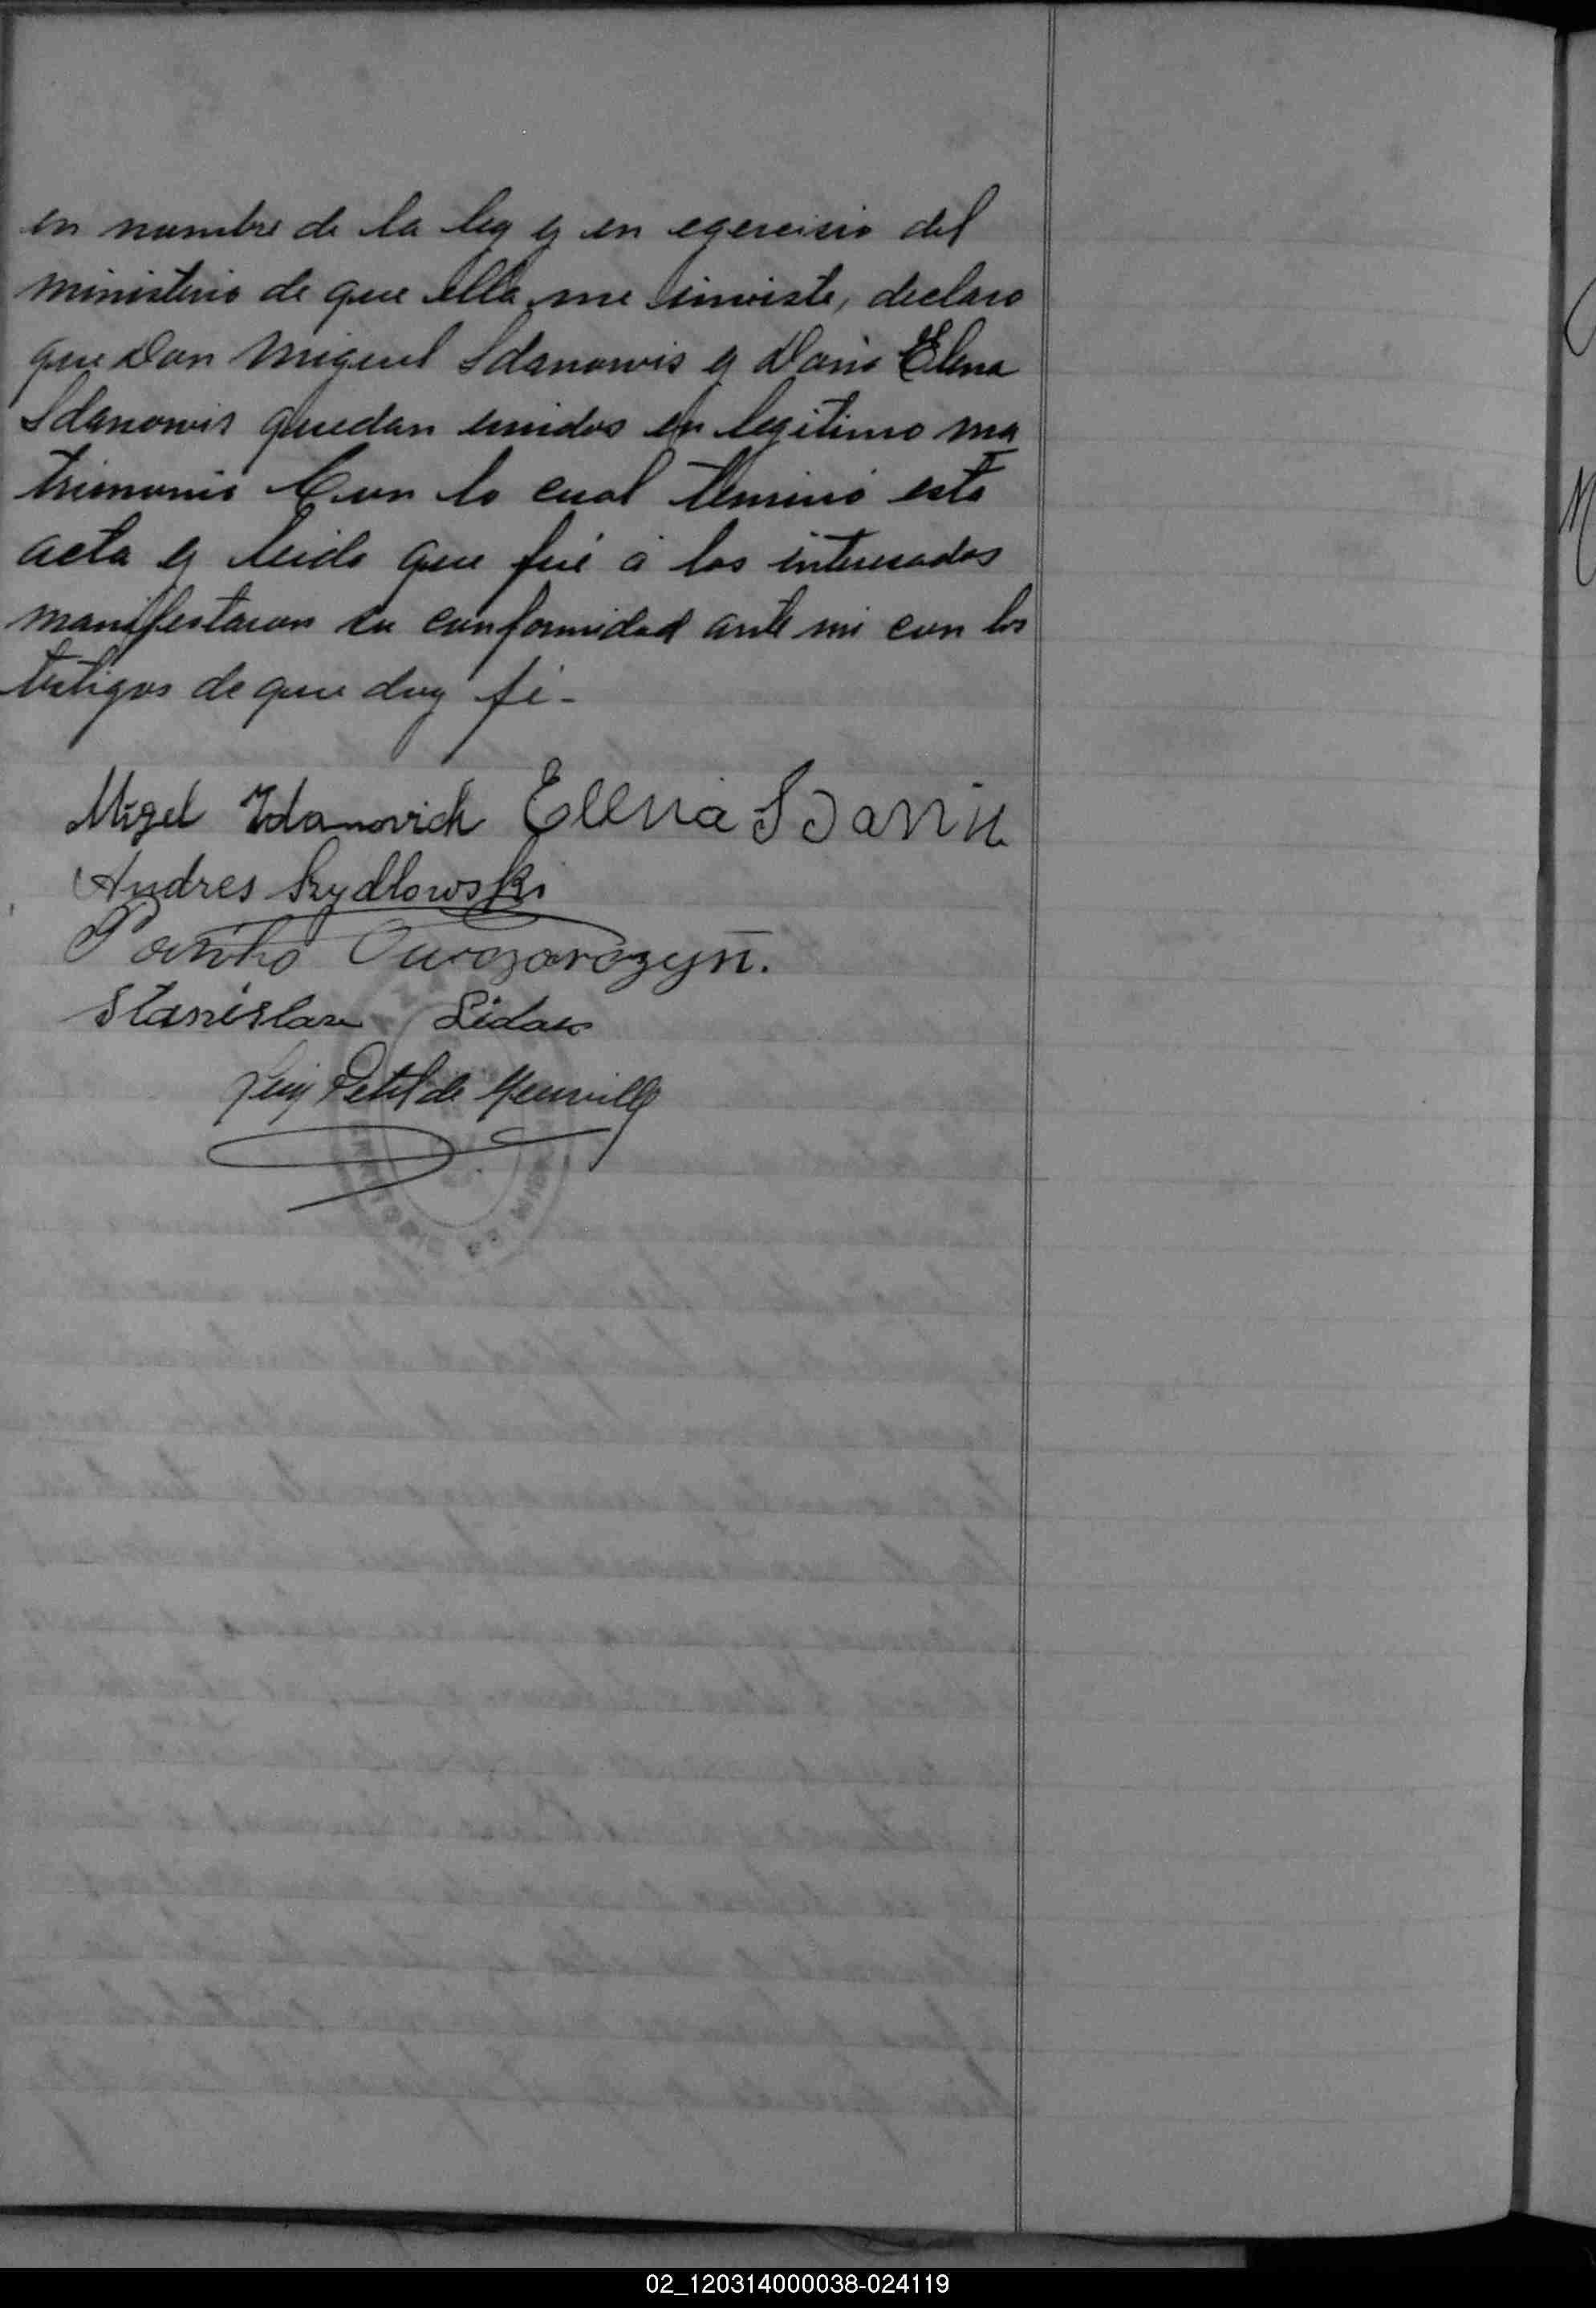 en nombre de la ley y en egercisio del
ministerio de que ella me inviste, declaro
que Don Miguel Sdanowis y Doña Elena
Sdanowis quedan unidos en legitimo ma
trimonio Con lo cual terminó esta
acta y leida que fué á los interesados
manifestaron su conformidad ante mi con los
testigos de que doy fé-
Migel Zdanovich Elena
Andres Szydlowski
Stanislaw
Petit de Meurville
02_120314000038-024119